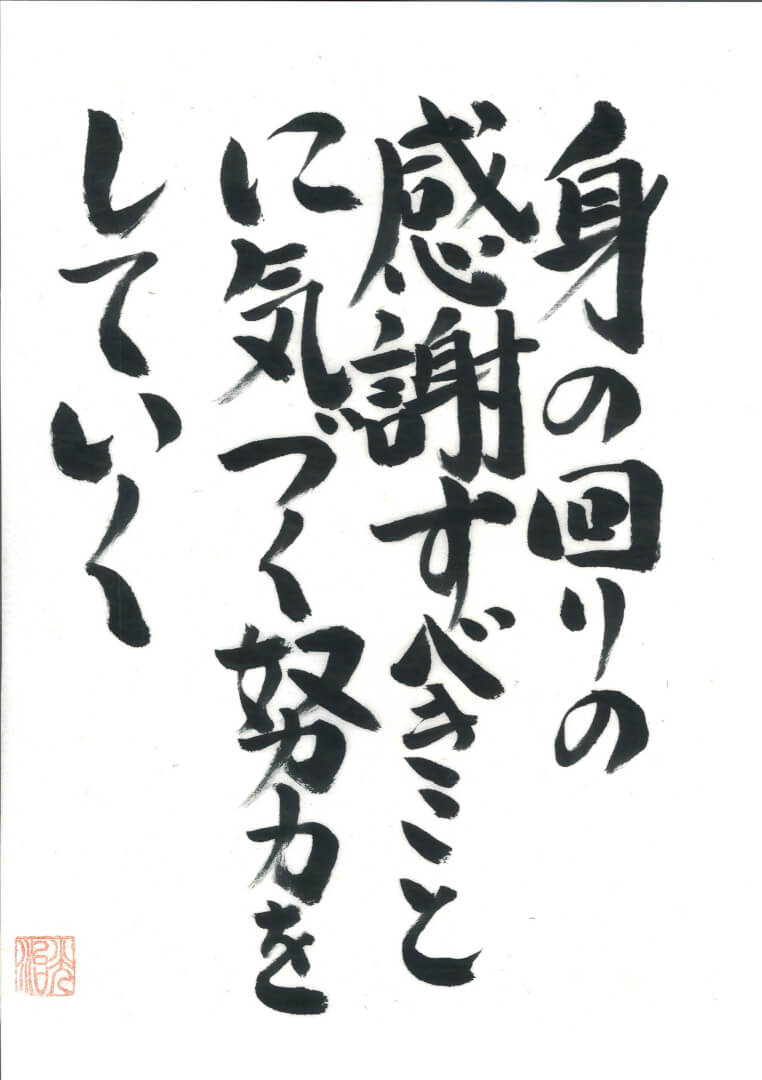 身の回りの
感謝すべきこと
に気づく努力を
していく